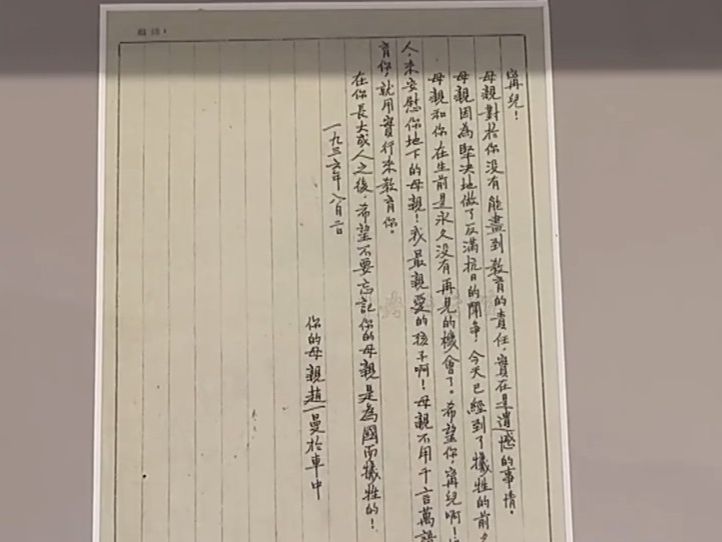 寗兒!
母親對於你没有能盡到教育的責任,實在是遺憾的事情。
母親因為堅决地做了反满抗日的鬥争,今天已經到了犧牲的前夕
母親和你在生前是永久没有再見的機會了。希望你,寗兒啊!
人,来安慰你地下的母親!我最親愛的孩子啊!母親不用千言萬語
育你,就用實行来教育你。
在你長大成人之後,希望不要忘記你的母親是為國而犧牲的!
一九三六年八月二日
你的母親趙一曼於車中